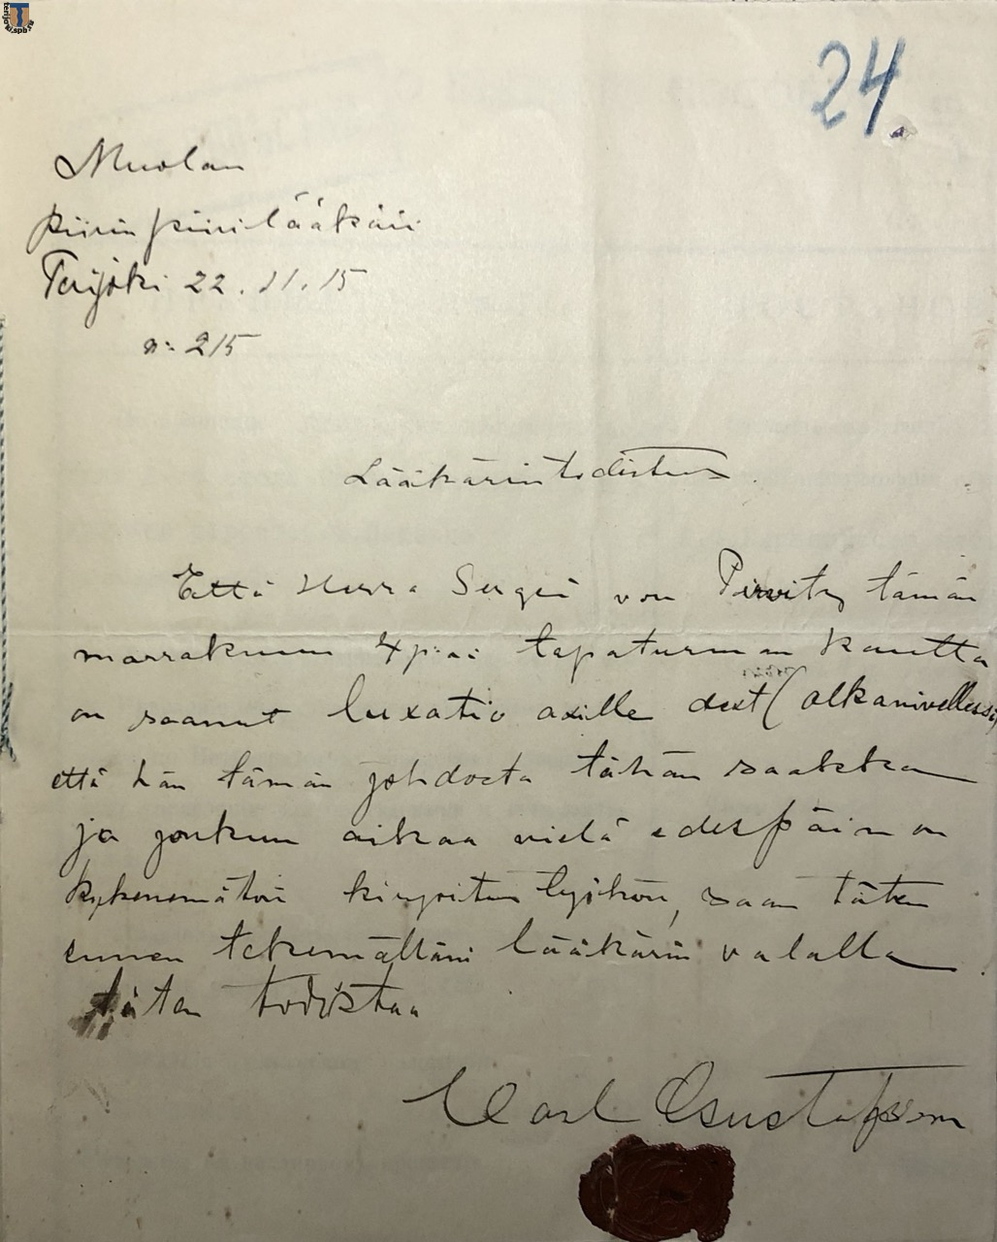 24.
Muolan
piirin piirilääkäri
Terijoki 22.11.15
n: 215
Lääkärintodistus.
Että Herra Sergei von Pervitz tämän
marraskuun 4 p:nä tapaturman kautta
on saanut luxatio axille dext (olkanivellessä)
että hän tämän johdosta tähän saakka
ja jonkun aikaa vielä edespäin on
kykenemätön kirjoitus työhön, saan täten
ennen tekemälläni lääkärin valalla
täten todistaa
Carl Gustafsson